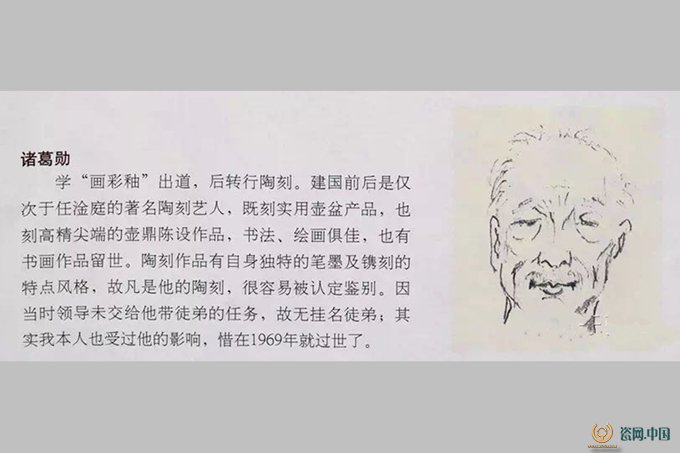 诸葛勋
学“画彩釉”出道，后转行陶刻。建国前后是仅
次于任淦庭的著名陶刻艺人，既刻实用壶盆产品，也
刻高精尖端的壶鼎陈设作品，书法、绘画俱佳，也有
书画作品留世。陶刻作品有自身独特的笔墨及镌刻的
特点风格，故凡是他的陶刻，很容易被认定鉴别。因
当时领导未交给他带徒弟的任务，故无挂名徒弟；其
实我本人也受过他的影响，惜在1969年就过世了。
瓷网.中国